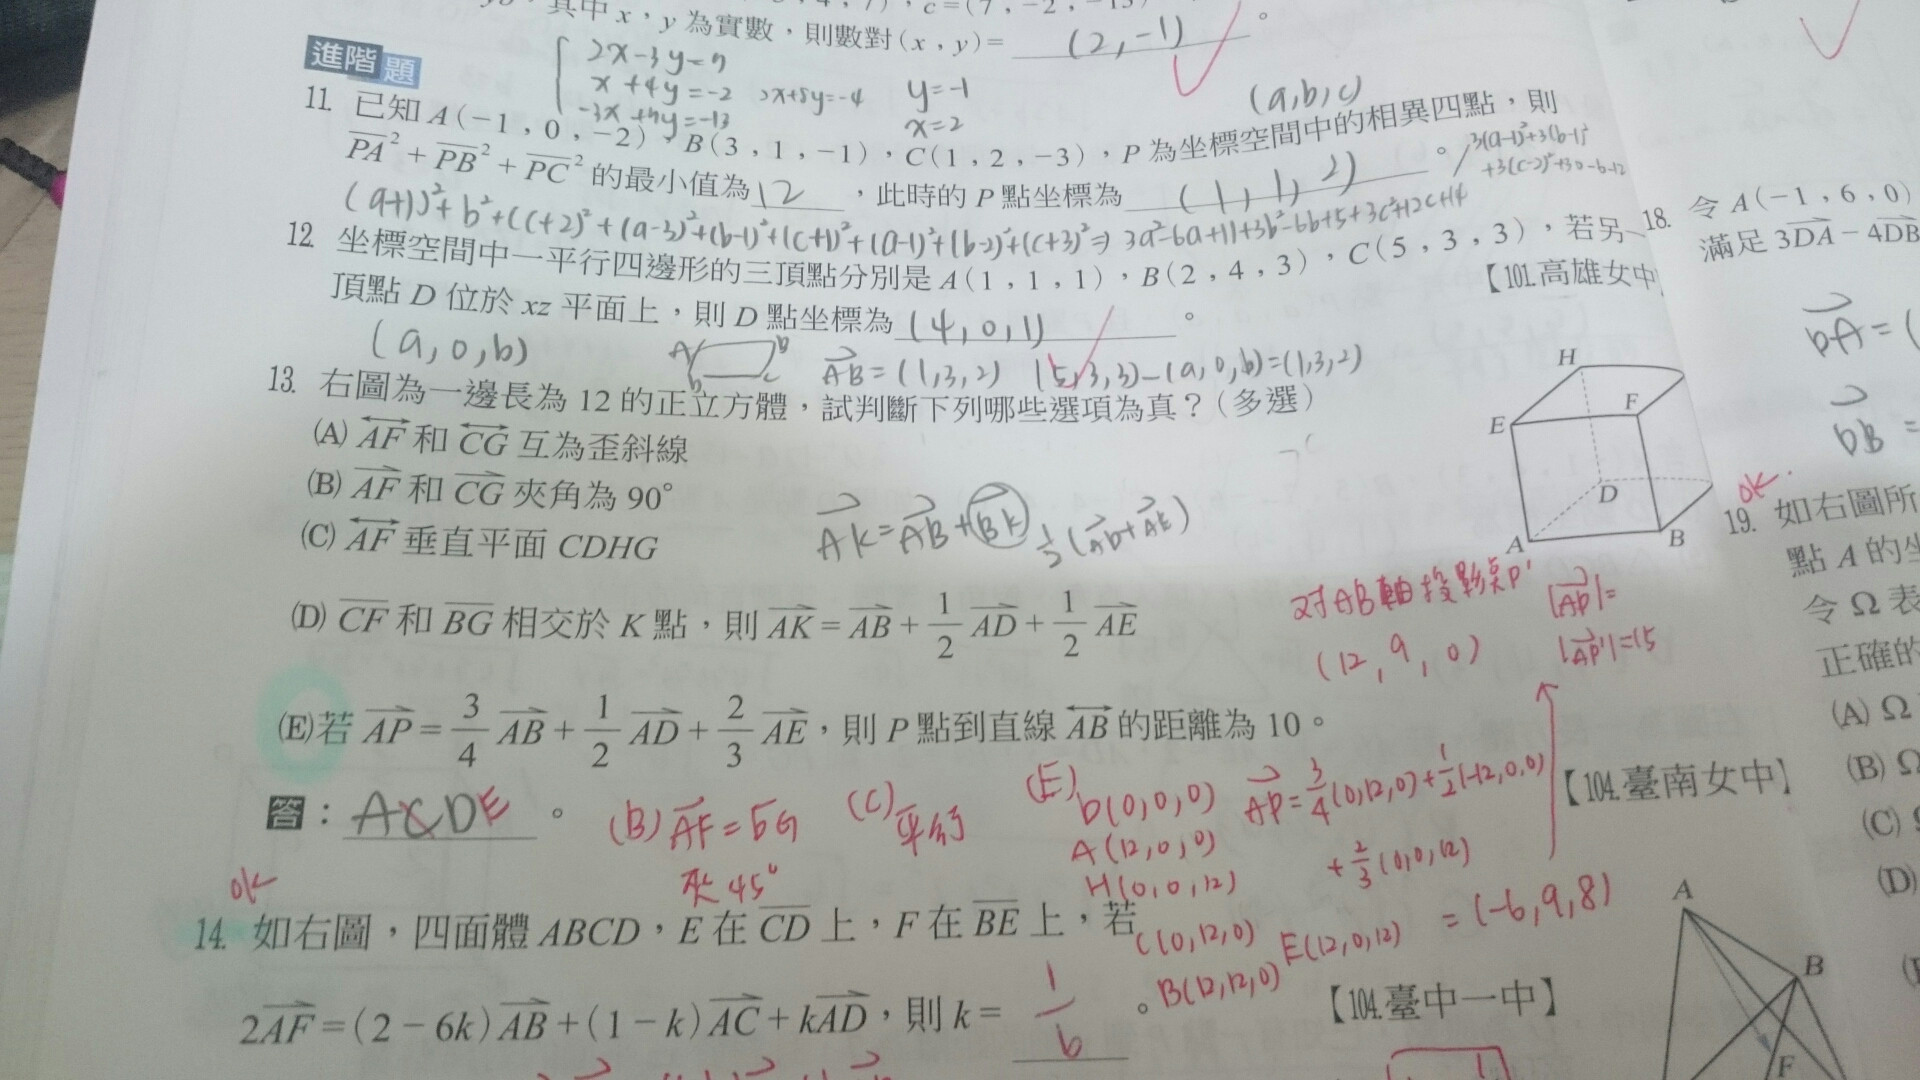 其中 x，y 為實數，則數對 (x，y)= (2,-1)。
進階題
2x-3y=7
x+4y=-2 2x+8y=-4 y=-1
x=2
(a,b,c)
11. 已知 A(-1，0，-2)，B(3，1，-1)，C(1，2，-3)，P 為坐標空間中的相異四點，則
PA²+PB²+PC² 的最小值為 12，此時的 P 點坐標為 (1,1,2)。
(a+1)²+b²+(c+2)²+(a-3)²+(b-1)²+(c+1)²+(a-1)²+(b-2)²+(c+3)²⇒3a²-6a+11+3b²-6b+5+3c²+12c+14
12. 坐標空間中一平行四邊形的三頂點分別是 A(1，1，1)，B(2，4，3)，C(5，3，3)，若另一
頂點 D 位於 xz 平面上，則 D 點坐標為 (4,0,1)。
【101.高雄女中
(a,0,b)
AB=(1,3,2) (5,3,3)-(a,0,b)=(1,3,2)
13. 右圖為一邊長為 12 的正立方體，試判斷下列哪些選項為真？(多選)
(A) AF 和 CG 互為歪斜線
(B) AF 和 CG 夾角為 90°
(C) AF 垂直平面 CDHG
AK=AB+BK ½(AD+AE)
(D) CF 和 BG 相交於 K 點，則 AK=AB+1/2 AD+1/2 AE
(E)若 AP=3/4 AB+1/2 AD+2/3 AE，則 P 點到直線 AB 的距離為 10。
【104.臺南女中】
H
E
F
D
A
B
对AB軸投影点P' |AP|=
(12,9,0) |AP'|=15
答：A D E。
(B) AF=BG
夾45°
(C)
(E) D(0,0,0)
A(12,0,0)
H(0,0,12)
C(0,12,0) E(12,0,12)
B(12,12,0)
AP=3/4(0,12,0)+1/2(-12,0,0)
+2/3(0,0,12)
=(-6,9,8)
ok
14. 如右圖，四面體 ABCD，E 在 CD 上，F 在 BE 上，若
2AF=(2-6k)AB+(1-k)AC+kAD，則 k= 1/6。
【104.臺中一中】
A
B
F
18. 令 A(-1，6，0)
滿足 3DA-4DB
DA=(
DB=
ok.
19. 如右圖所
點 A 的坐
令 Ω 表
正確的
(A) Ω
(B) Ω
(C)
(D)